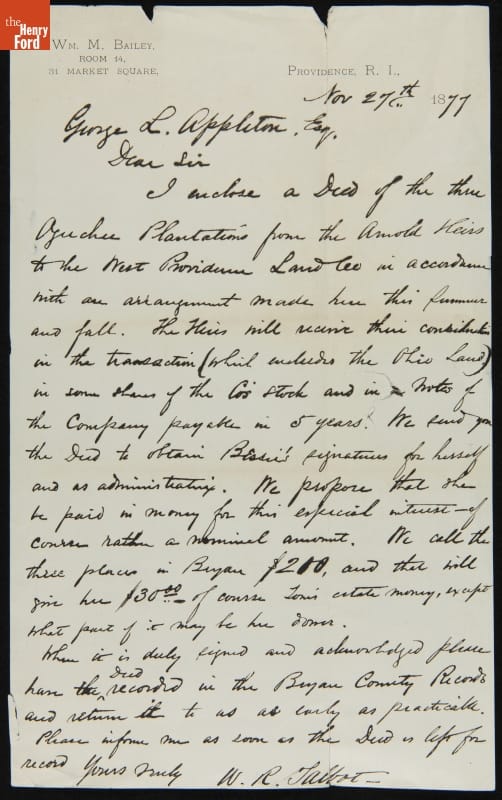 the
Henry
Ford
WM. M. BAILEY,
ROOM 14,
31 MARKET SQUARE,
PROVIDENCE, R. I.,
Nov 27th 1877
George L. Appleton, Esq.
Dear Sir
I enclose a Deed of the three
Ogechee Plantations from the Arnold Heirs
to the West Providence Land Co in accordance
with an arrangement made here this summer
and fall. The Heirs will receive their consideration
in the transaction (which includes the Ohio Land)
in some shares of the Co's stock and in Notes of
the Company payable in 5 years. We send you
the Deed to obtain Bessie's signatures for herself
and as administratrix. We propose that she
be paid in money for this especial interest - of
course rather a nominal amount. We call the
three places in Bryan $200, and that will
give her $30.00 of course Tom's estate money, except
what part of it may be her dower.
When it is duly signed and acknowledged please
have the Deed recorded in the Bryan County Records
and return it to us as early as practicable.
Please inform me as soon as the Deed is left for
record Yours truly W. R. Talbot